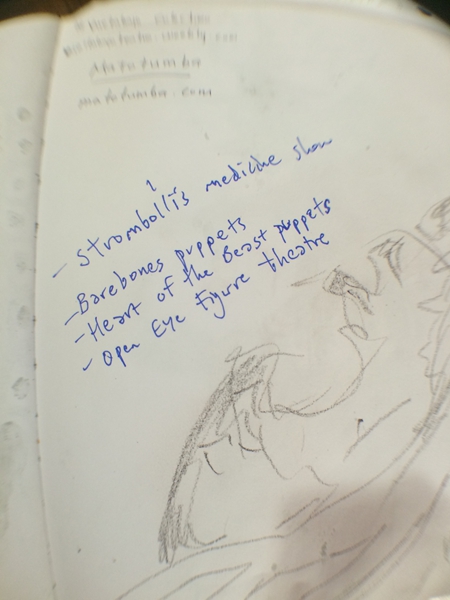 Matotumba
matotumba.com
- Strombolli's medicine show
- Barebones puppets
- Heart of the Beast puppets
- Open Eye Figure theatre